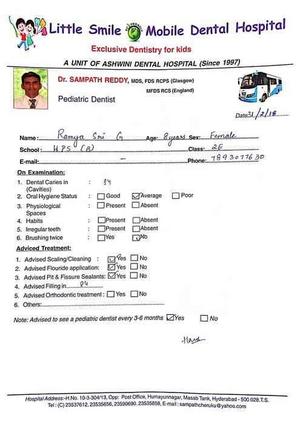 Little Smile Mobile Dental Hospital
Exclusive Dentistry for kids
A UNIT OF ASHWINI DENTAL HOSPITAL (Since 1997)
Dr. SAMPATH REDDY, MDS, FDS RCPS (Glasgow)
MFDS RCS (England)
Pediatric Dentist
Date:
Name: Ramya Sri G Age: 8 years Sex: Female
School: HPS (R) Class: 2E
E-mail: Phone: 7893077630
On Examination:
1. Dental Caries in (Cavities) :
2. Oral Hygiene Status : Good Average Poor
3. Physiological Spaces : Present Absent
4. Habits : Present Absent
5. Irregular teeth : Present Absent
6. Brushing twice : Yes No
Adviced Treatment:
1. Advised Scaling/Cleaning : Yes No
2. Advised Flouride application: Yes No
3. Advised Pit & Fissure Sealants: Yes No
4. Advised Filling in
5. Advised Orthodontic treatment : Yes No
6. Others:
Note: Advised to see a pediatric dentist every 3-6 months Yes No
Hospital Address:-H.No. 10-3-304/13, Opp: Post Office, Humayunnagar, Massb Tank, Hyderabad - 500 028.T.S.
Tel: (C) 23537612, 23535656, 23590690. 23535858. E-mail : sampathcheruku@yahoo.com